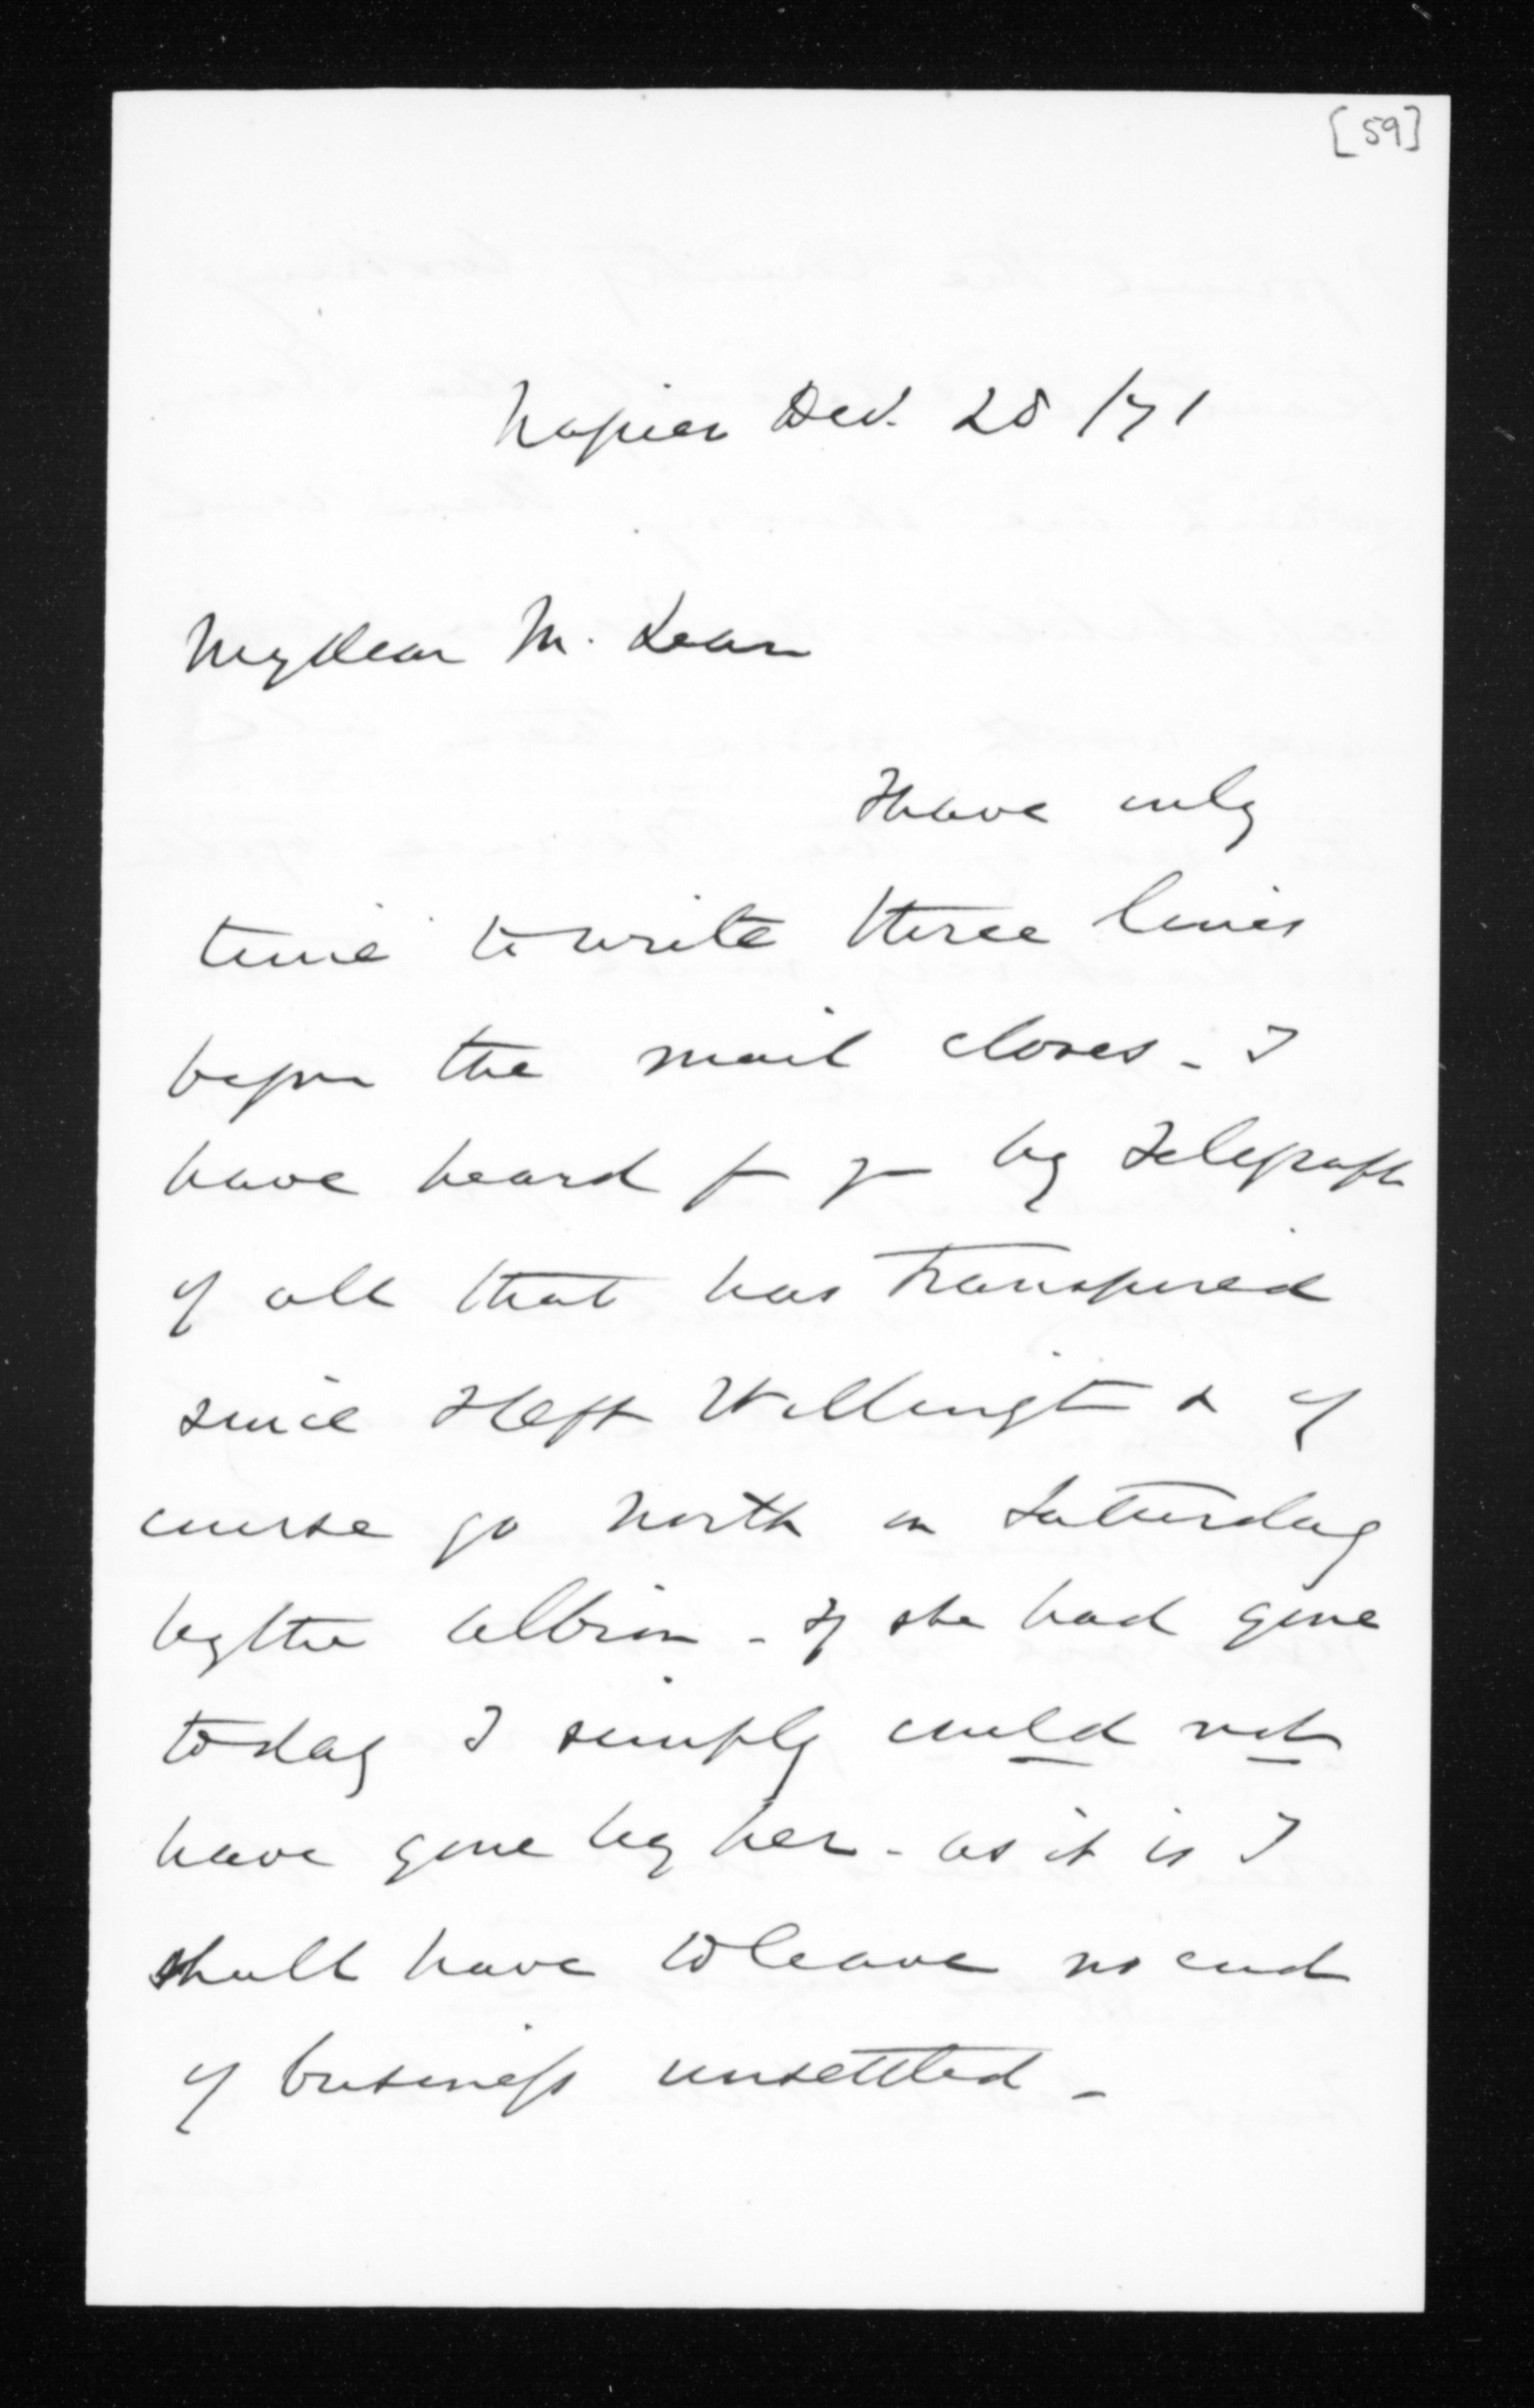 [59]
Napier Dec. 28 /71
My dear M. Lean
I have only
time to write three lines
before the mail closes - I
have heard fr yr by Telegraph
of all that has transpired
since I left Wellingt & of
course go North on Saturday
by the Albion - If she had gone
today I simply could not
have gone by her - as it is I
shall have to leave no end
of business unsettled -